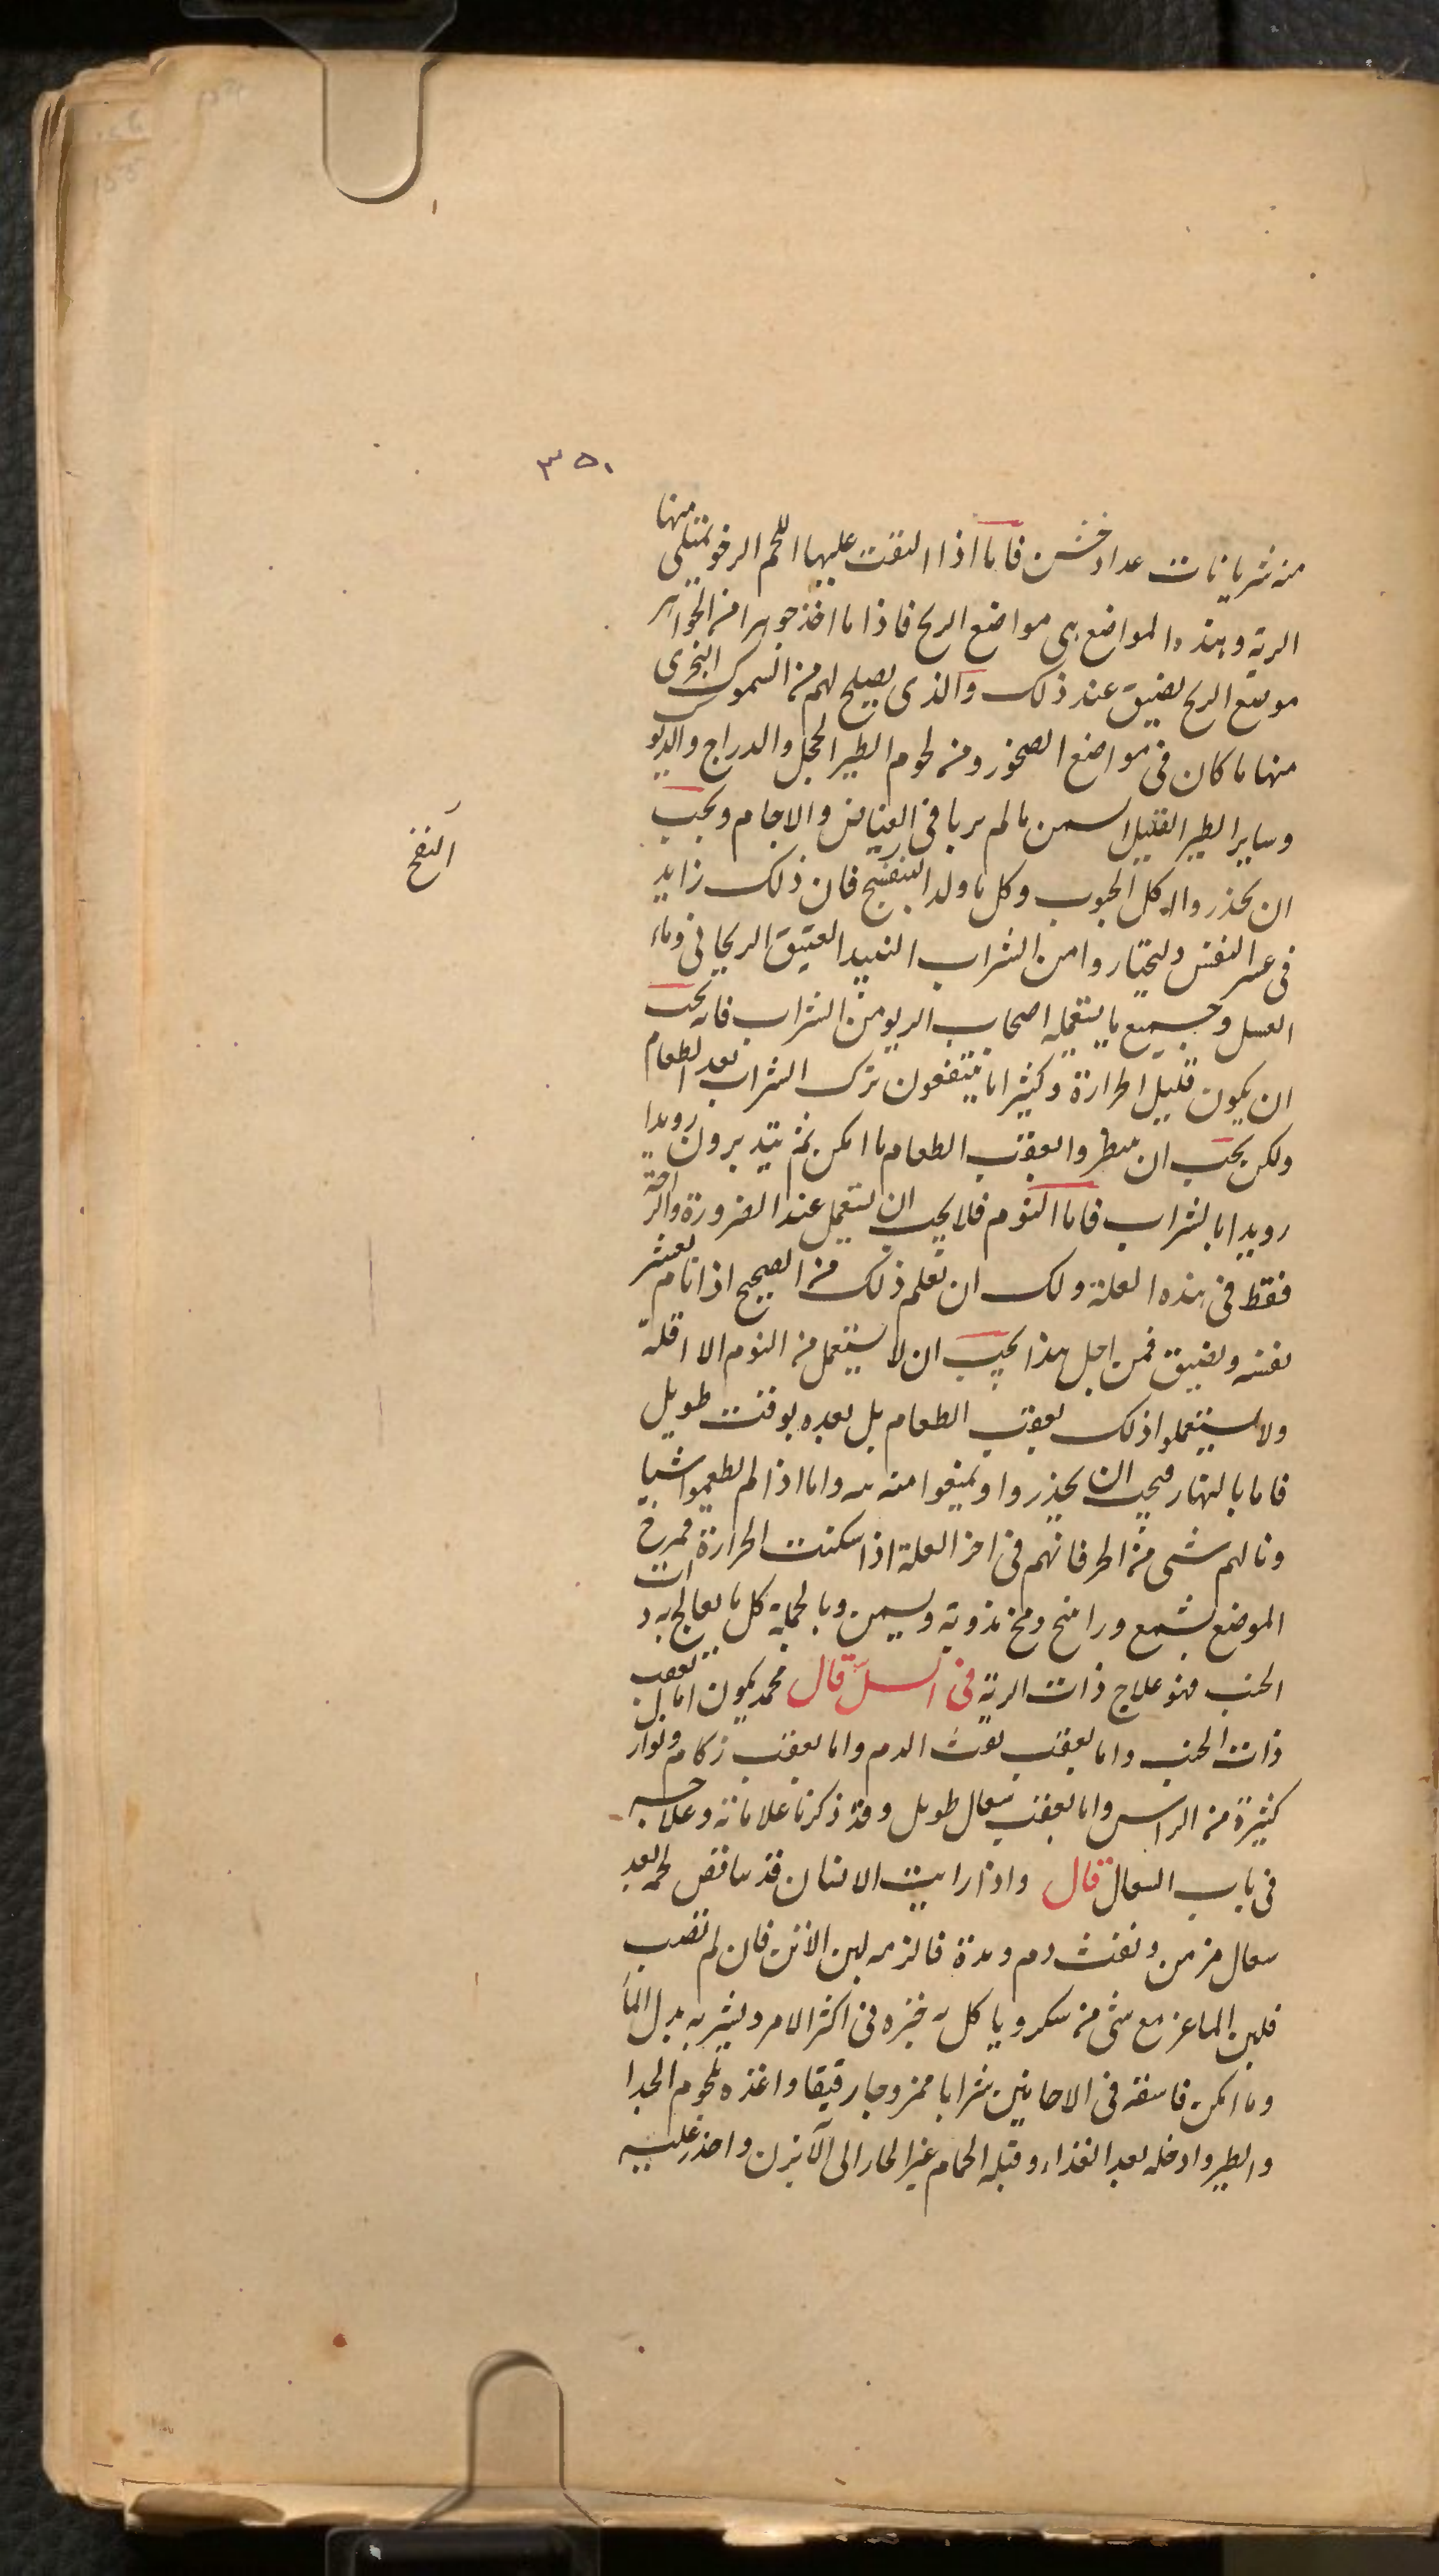 ٣٥٠
منه شريانات عداد خشن فاما اذا التقت عليها اللحم الرخو تمتلى منها
الرية وهذه المواضع هى مواضع الريح فاذا ما اخذ جوهرا من الجواهر
موضع الريح يضيق عند ذلك والذى يصلح لهم من السموك البحرى
منها ما كان فى مواضع الصخور ومن لحوم الطير الحجل والدراج والديو
وساير الطير القليل السمن ما لم يربا فى الغياض والاجام ويجب
ان يحذروا اكل الحبوب وكل ما ولد النفخ فان ذلك زايد
النفخ
فى عسر النفس وليختاروا من الشراب النبيد العتيق الريحانى وماء
العسل وجميع ما يستعمله اصحاب الربو من الشراب فانه يجب
ان يكون قليل الحرارة وكثيرا ما ينتفعون بترك الشراب بعد الطعام
ولكن يجب ان ينتظروا بعقب الطعام ما امكن ثم يتدبرون رويدا
رويدا بالشراب فاما النوم فلا يجب ان يستعمل عند الضرورة والراحة
فقط فى هذه العلة ولك ان تعلم ذلك من الصحيح اذا نام يعسر
نفسه ويضيق فمن اجل هذا يجب ان لا يستعمل من النوم الا اقلة
ولا يستعملوا ذلك بعقب الطعام بل بعده بوقت طويل
فاما بالنهار فيجب ان يحذروا ويمنعوا منه واما اذا لم يطعموا شيا
ونالهم شى من الحر فانهم فى اخر العلة اذا سكنت الحرارة فمرخ
الموضع بشمع وراتنج ومخ وسمن وبالجملة كل ما يعالج به ذات
الجنب فهو علاج ذات الرية فى السل قال محمد يكون اما بعقب
ذات الجنب واما بعقب نفث الدم واما بعقب زكام ونوازل
كثيرة من الراس واما بعقب سعال طويل وقد ذكرنا علاماته وعلاجه
فى باب السعال قال واذا رايت الانسان قد تناقص لحمه بعد
سعال مزمن ونفث دم ومدة فالزمه لبن الاتن فان لم تصب
فلبن الماعز مع شى من سكر وياكل به خبزه فى اكثر الامر ويشربه بدل الماء
وما امكن فاسقه فى الاحايين شرابا ممزوجا رقيقا واغذه بلحوم الجدا
والطير وادخله بعد الغذاء وقبله الحمام غير الحار الى الآبزن واحذر عليه